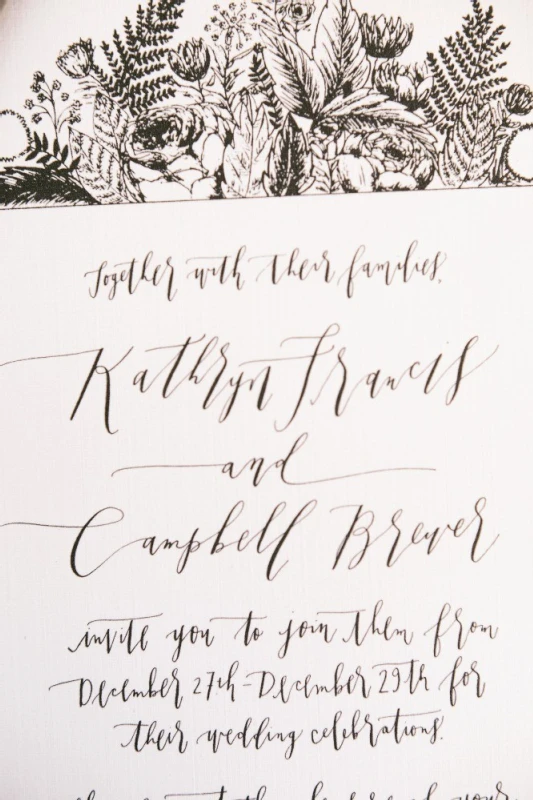 Together with their families,
Kathryn Francis
and
Campbell Brewer
invite you to join them from
December 27th-December 29th for
their wedding celebrations.
your